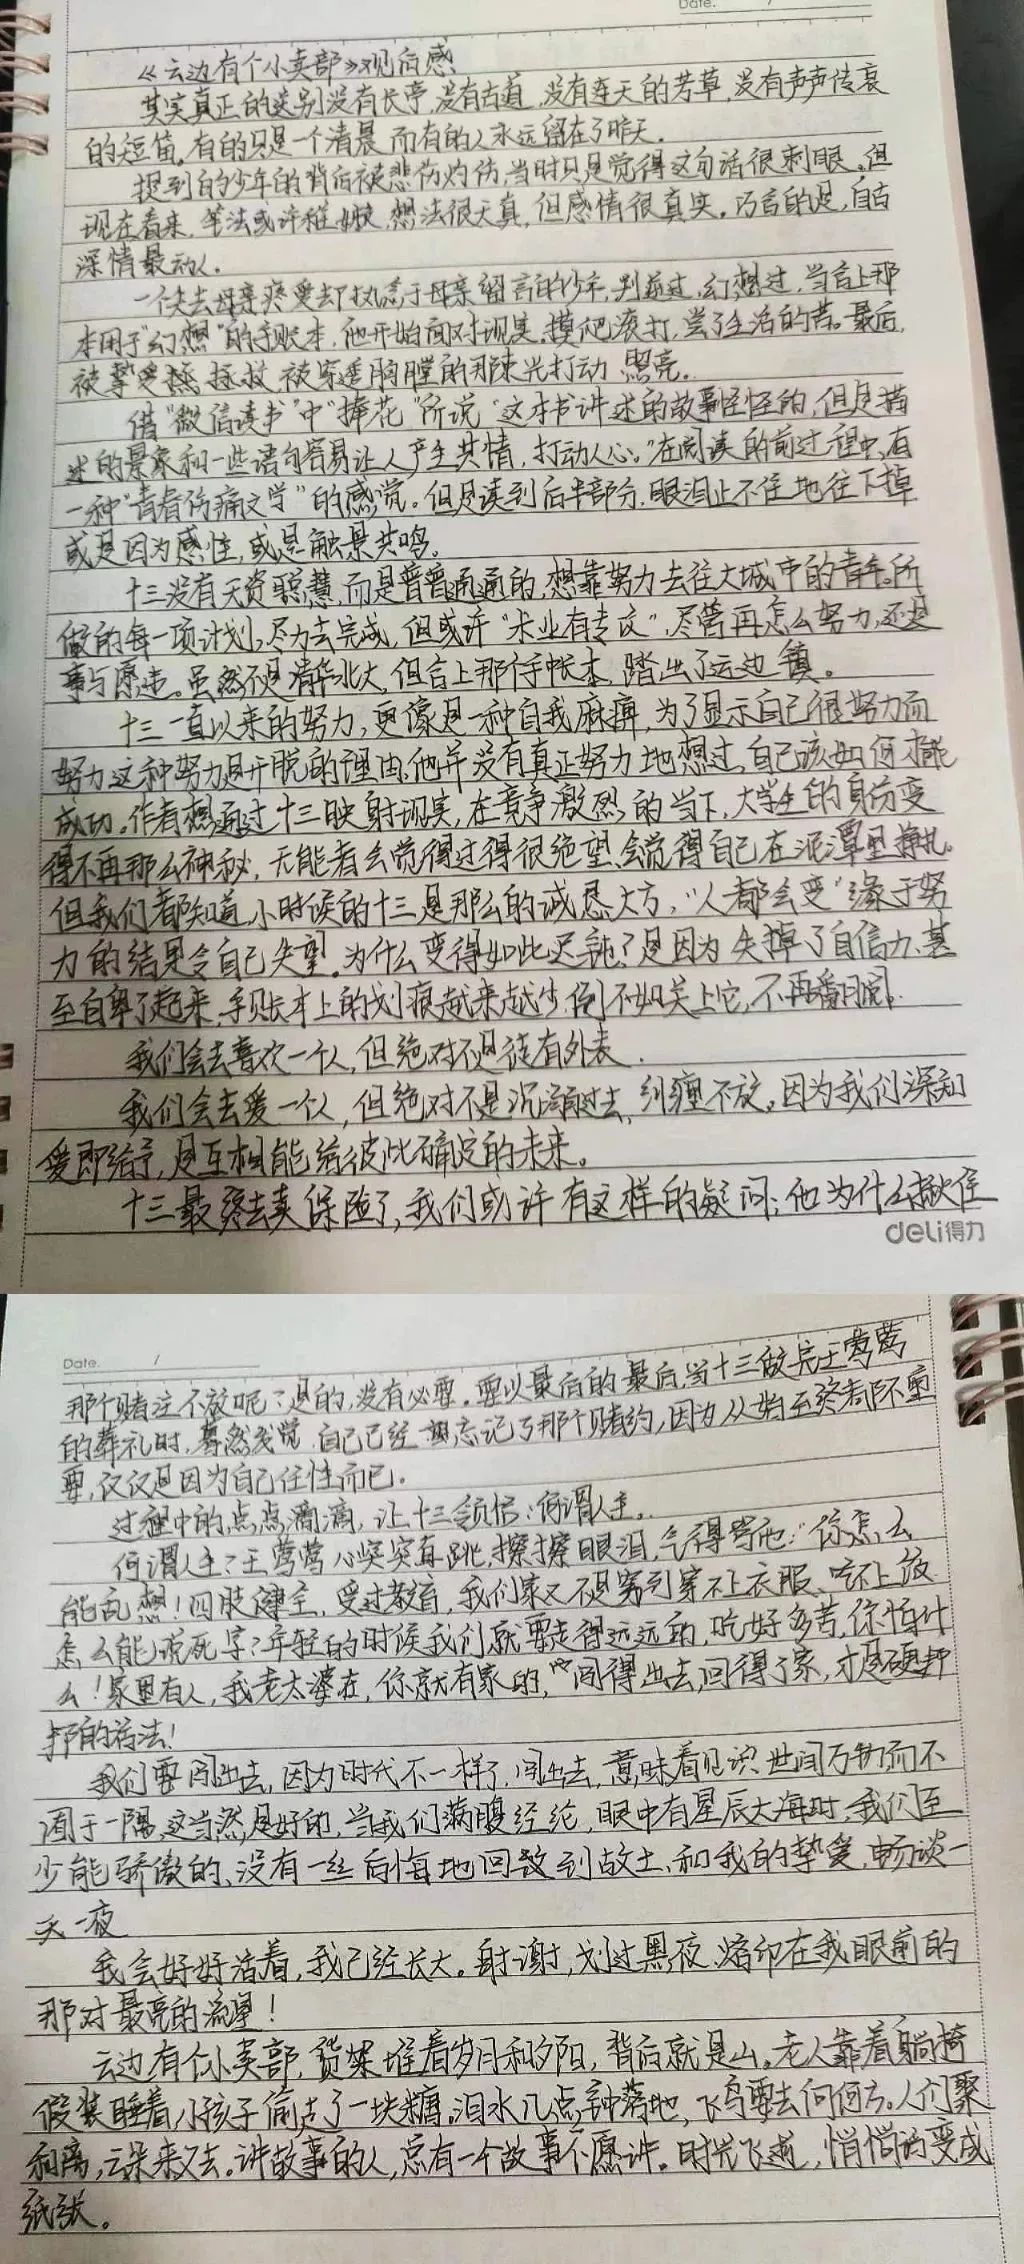 Date. /
《云边有个小卖部》观后感
其实真正的送别没有长亭,没有古道,没有连天的芳草,没有声声传哀
的短笛。有的只是一个清晨,而有的人永远留在了昨天。
提到的少年的背后被悲伤灼伤,当时只是觉得这句话很刺眼。但
现在看来,笔法或许稚嫩,想法很天真,但感情很真实。巧言的是,自古
深情最动人。
一个失去母亲疼爱却执念于母亲留言的少年,叛逆过,幻想过,当合上那
本用于"幻想"的手账本,他开始面对现实,摸爬滚打,尝了生活的苦。最后,
被挚爱 拯救,被穿透胸膛的那束光打动 照亮。
借"微信读书"中"捧花"所说"这本书讲述的故事怪怪的,但是描
述的景象和一些语句容易让人产生共情,打动人心。"在阅读的前过程中,有
一种"青春伤痛文学"的感觉。但是读到后半部分,眼泪止不住地往下掉
或是因为感性,或是触景共鸣。
十三没有天资聪慧,而是普普通通的,想靠努力去往大城市的青年。所
做的每一项计划,尽力去完成,但或许"术业有专攻",尽管再怎么努力,还是
事与愿违。虽然不是清华北大,但合上那付手帐本,踏出了云边镇。
十三一直以来的努力,更像是一种自我麻痹,为了显示自己很努力而
努力这种努力是开脱的理由,他并没有真正努力地想过,自己该如何才能
成功。作者想通过十三映射现实,在竞争激烈的当下,大学生的身份变
得不再那么神秘,无能者会觉得过得很绝望,会觉得自己在泥潭里挣扎。
但我们都知道,小时候的十三是那么的诚恳大方,"人都会变"缘于努
力的结果令自己失望。为什么变得如此迟钝?是因为失掉了自信力,甚
至自卑了起来,手账本上的划痕越来越少,倒不如关上它,不再翻阅。
我们会去喜欢一个人,但绝对不是徒有外表.
我们会去爱一个人,但绝对不是沉湎过去,纠缠不放。因为我们深知
爱即给予,是互相能给彼此确定的未来。
十三最终去卖保险了,我们或许有这样的疑问:他为什么揪住
deli得力
Date. /
那个赌注不放呢?是的,没有必要。要以最后的最后,当十三做完王莺莺
的葬礼时,蓦然发觉,自己已经忘记了那个赌约,因为从始至终都不重
要,仅仅是因为自己任性而已。
过程中的点点滴滴,让十三领悟:何谓人生。
何谓人生?王莺莺心突突直跳,擦擦眼泪,气得骂他:"你怎么
能乱想!四肢健全,受过教育,我们家又不是穷到穿不上衣服、吃不上饭
怎么能说死字?年轻的时候我们就要走得远远的,吃好多苦,你怕什
么!家里有人,我老太婆在,你就有家的,"闯得出去,回得了家,才是硬邦
邦的活法!
我们要闯出去,因为时代不一样了,闯出去,意味着见识世间万物而不
囿于一隅,这当然是好的,当我们满腹经纶,眼中有星辰大海时,我们至
少能骄傲的、没有一丝后悔地回到故土,和我的挚爱,畅谈一
天一夜
我会好好活着,我已经长大。谢谢,划过黑夜、烙印在我眼前的
那对最亮的流星!
云边有个小卖部,货架堆着岁月和夕阳,背后就是山。老人靠着躺椅
假装睡着,小孩子偷走了一块糖。泪水几点钟落地,飞鸟要去向何方。人们聚
和离,云朵来又去。讲故事的人,总有一个故事不愿讲。时光飞逝,悄悄的变成
纸张。